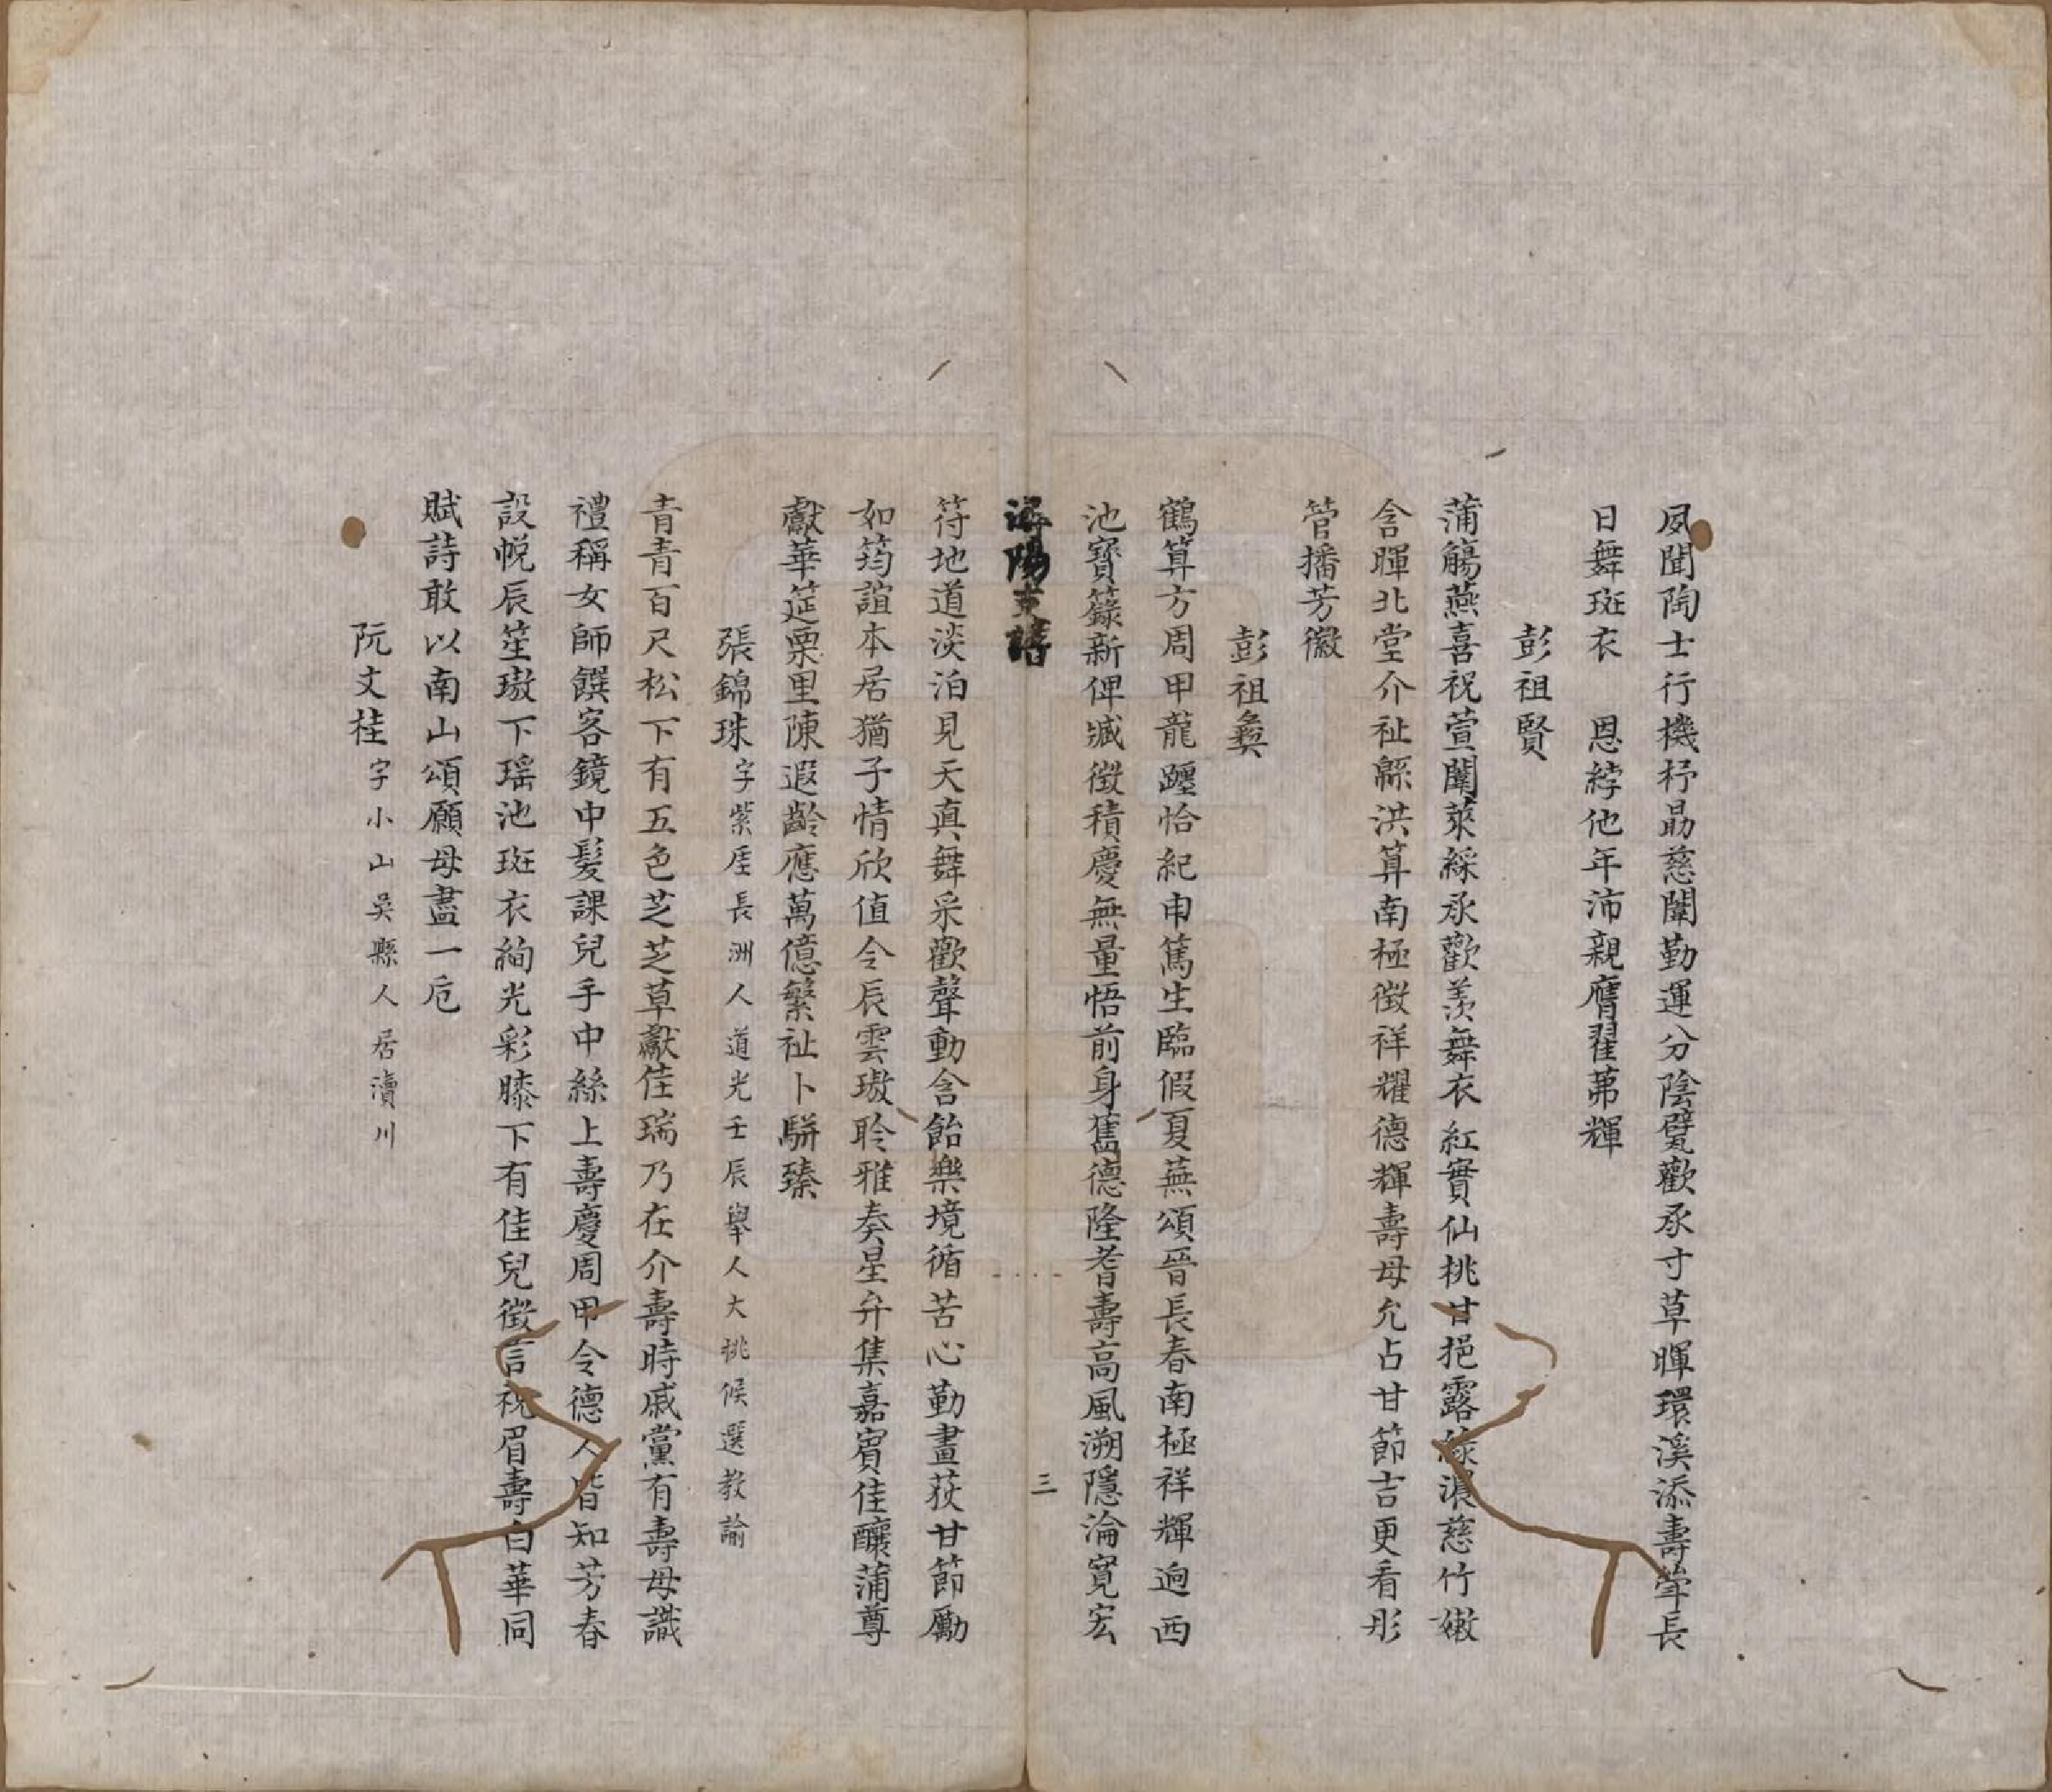 夙聞陶士行機杼勗慈闈勤運分陰甓歡承寸草暉環溪添壽筭長
日舞斑衣　恩綍他年沛親膺翟茀輝
彭祖賢
蒲觴燕喜祝萱闈萊綵承歡羨舞衣紅實仙桃甘挹露綠濃慈竹嫩
含暉北堂介祉緜洪算南極徵祥耀德輝壽母允占甘節吉更看彤
管播芳徽
彭祖彝
鶴算方周甲龍躔恰紀申篤生臨假夏蕪頌晉長春南極祥輝逈西
池寶籙新俾臧徵積慶無量悟前身舊德隆耆壽高風溯隱淪寬宏
潯陽支譜
三
符地道淡泊見天真舞采歡聲動含飴樂境循苦心勤畫荻甘節勵
如筠誼本居猶子情欣值令辰雲璈聆雅奏星弁集嘉賓佳釀蒲尊
獻華筵栗里陳遐齡應萬億繁祉卜駢臻
張錦珠字紫厓長洲人道光壬辰舉人大挑候選教諭
青青百尺松下有五色芝芝草獻佳瑞乃在介壽時戚黨有壽母識
禮稱女師饌客鏡中髮課兒手中絲上壽慶周甲令德人皆知芳春
設帨辰笙璈下瑶池斑衣絢光彩膝下有佳兒徵言祝眉壽白華同
賦詩敢以南山頌願母盡一卮
阮文桂字小山吳縣人居瀆川